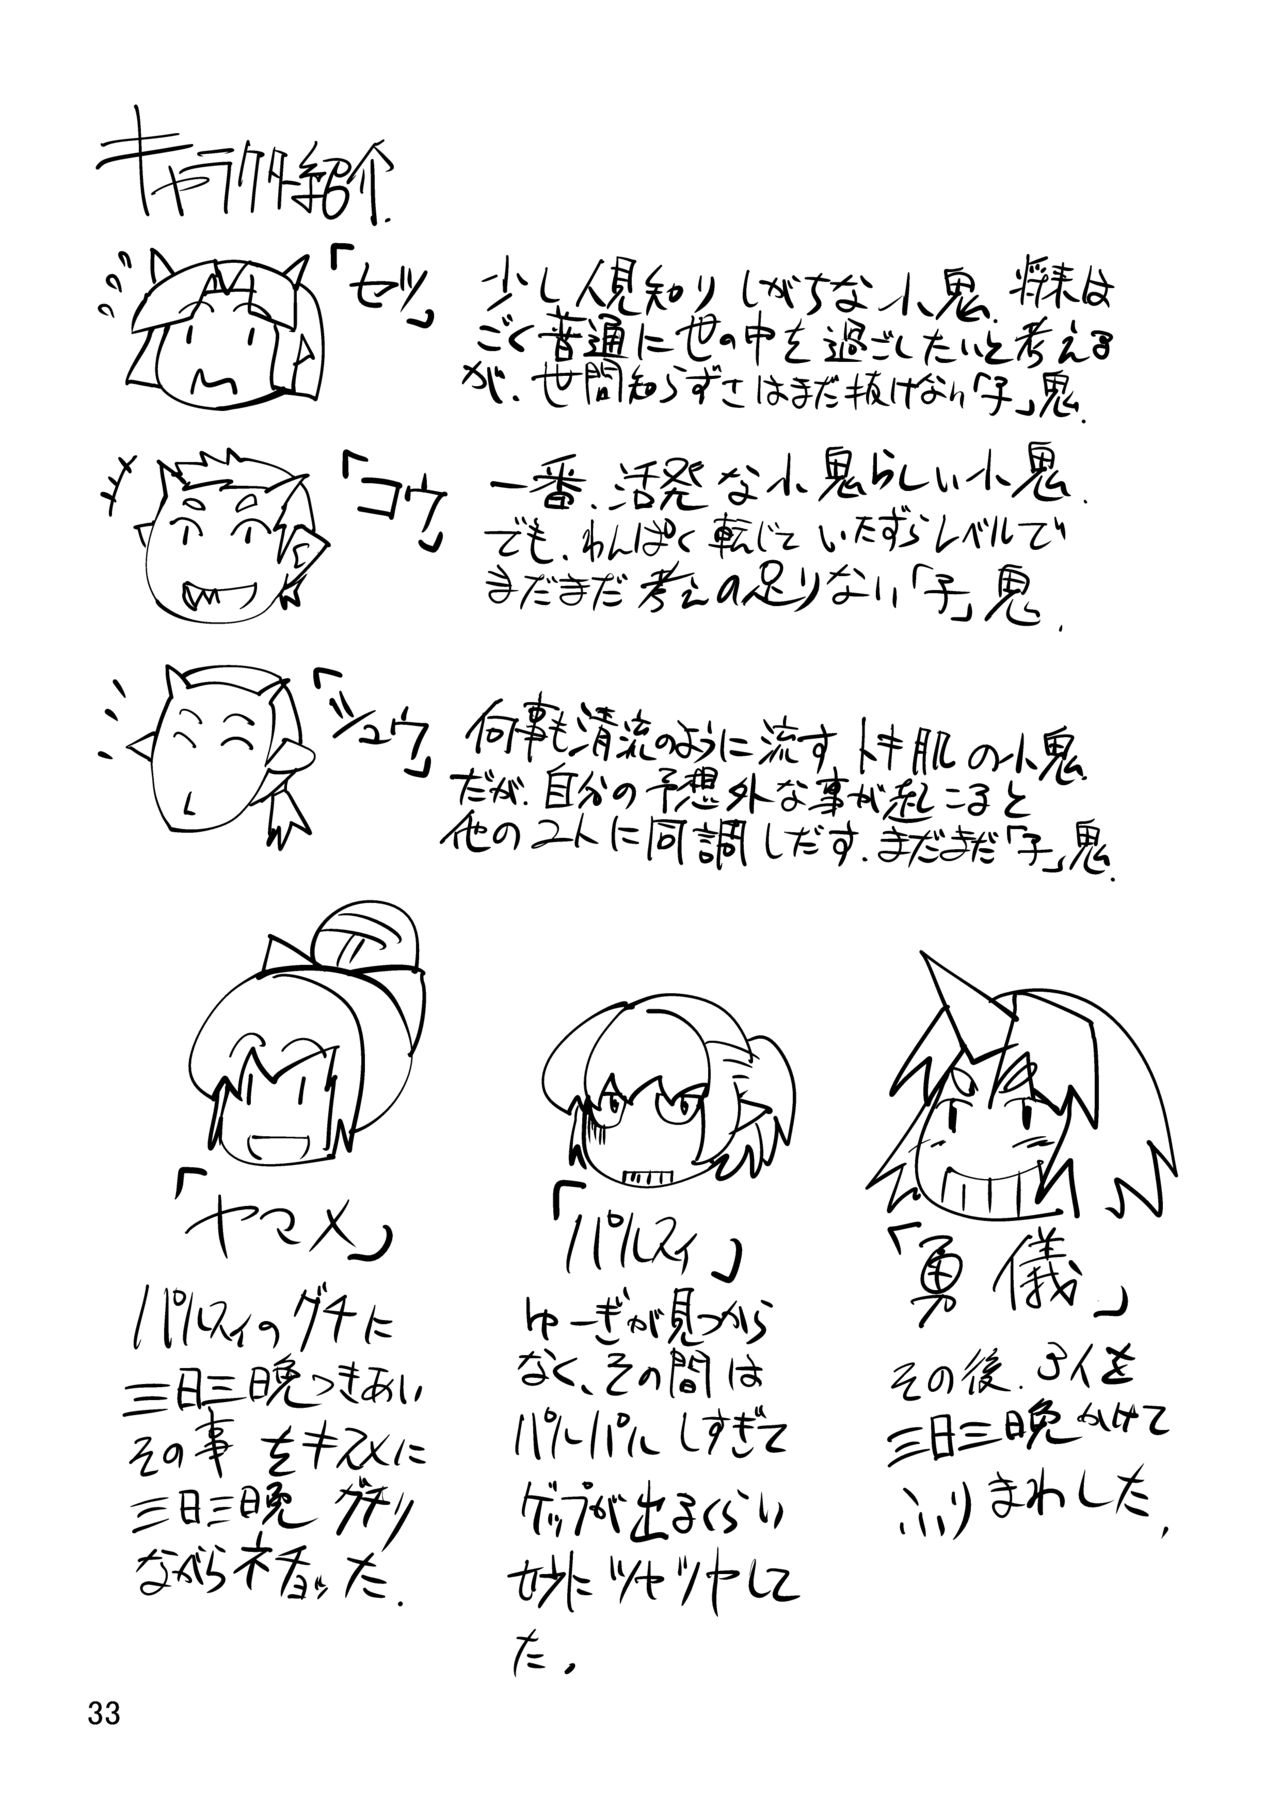 キャラクター紹介.
「セツ」
少し人見知りしがちな小鬼. 将来は
ごく普通に世の中を過ごしたいと考える
が、世間知らずさはまだ抜けない「子」鬼.
「コウ」
一番、活発な小鬼らしい小鬼.
でも、わんぱく転じていたずらレベルで
まだまだ考えの足りない「子」鬼.
「ジュウ」
何事も清流のように流すトキ肌の小鬼.
だが、自分の予想外な事が起こると
他のユトに同調しだす、まだまだ「子」鬼.
「ヤマメ」
パルスィのグチに
三日三晩つきあい
その事をキスメに
三日三晩グチり
ながらネチョった.
「パルスィ」
ゆーぎが見つから
なく、その間は
パルパルしすぎて
ゲップが出るくらい
妙にツヤツヤして
た.
「勇儀」
その後、3人を
三日三晩かけて
ふりまわした.
33